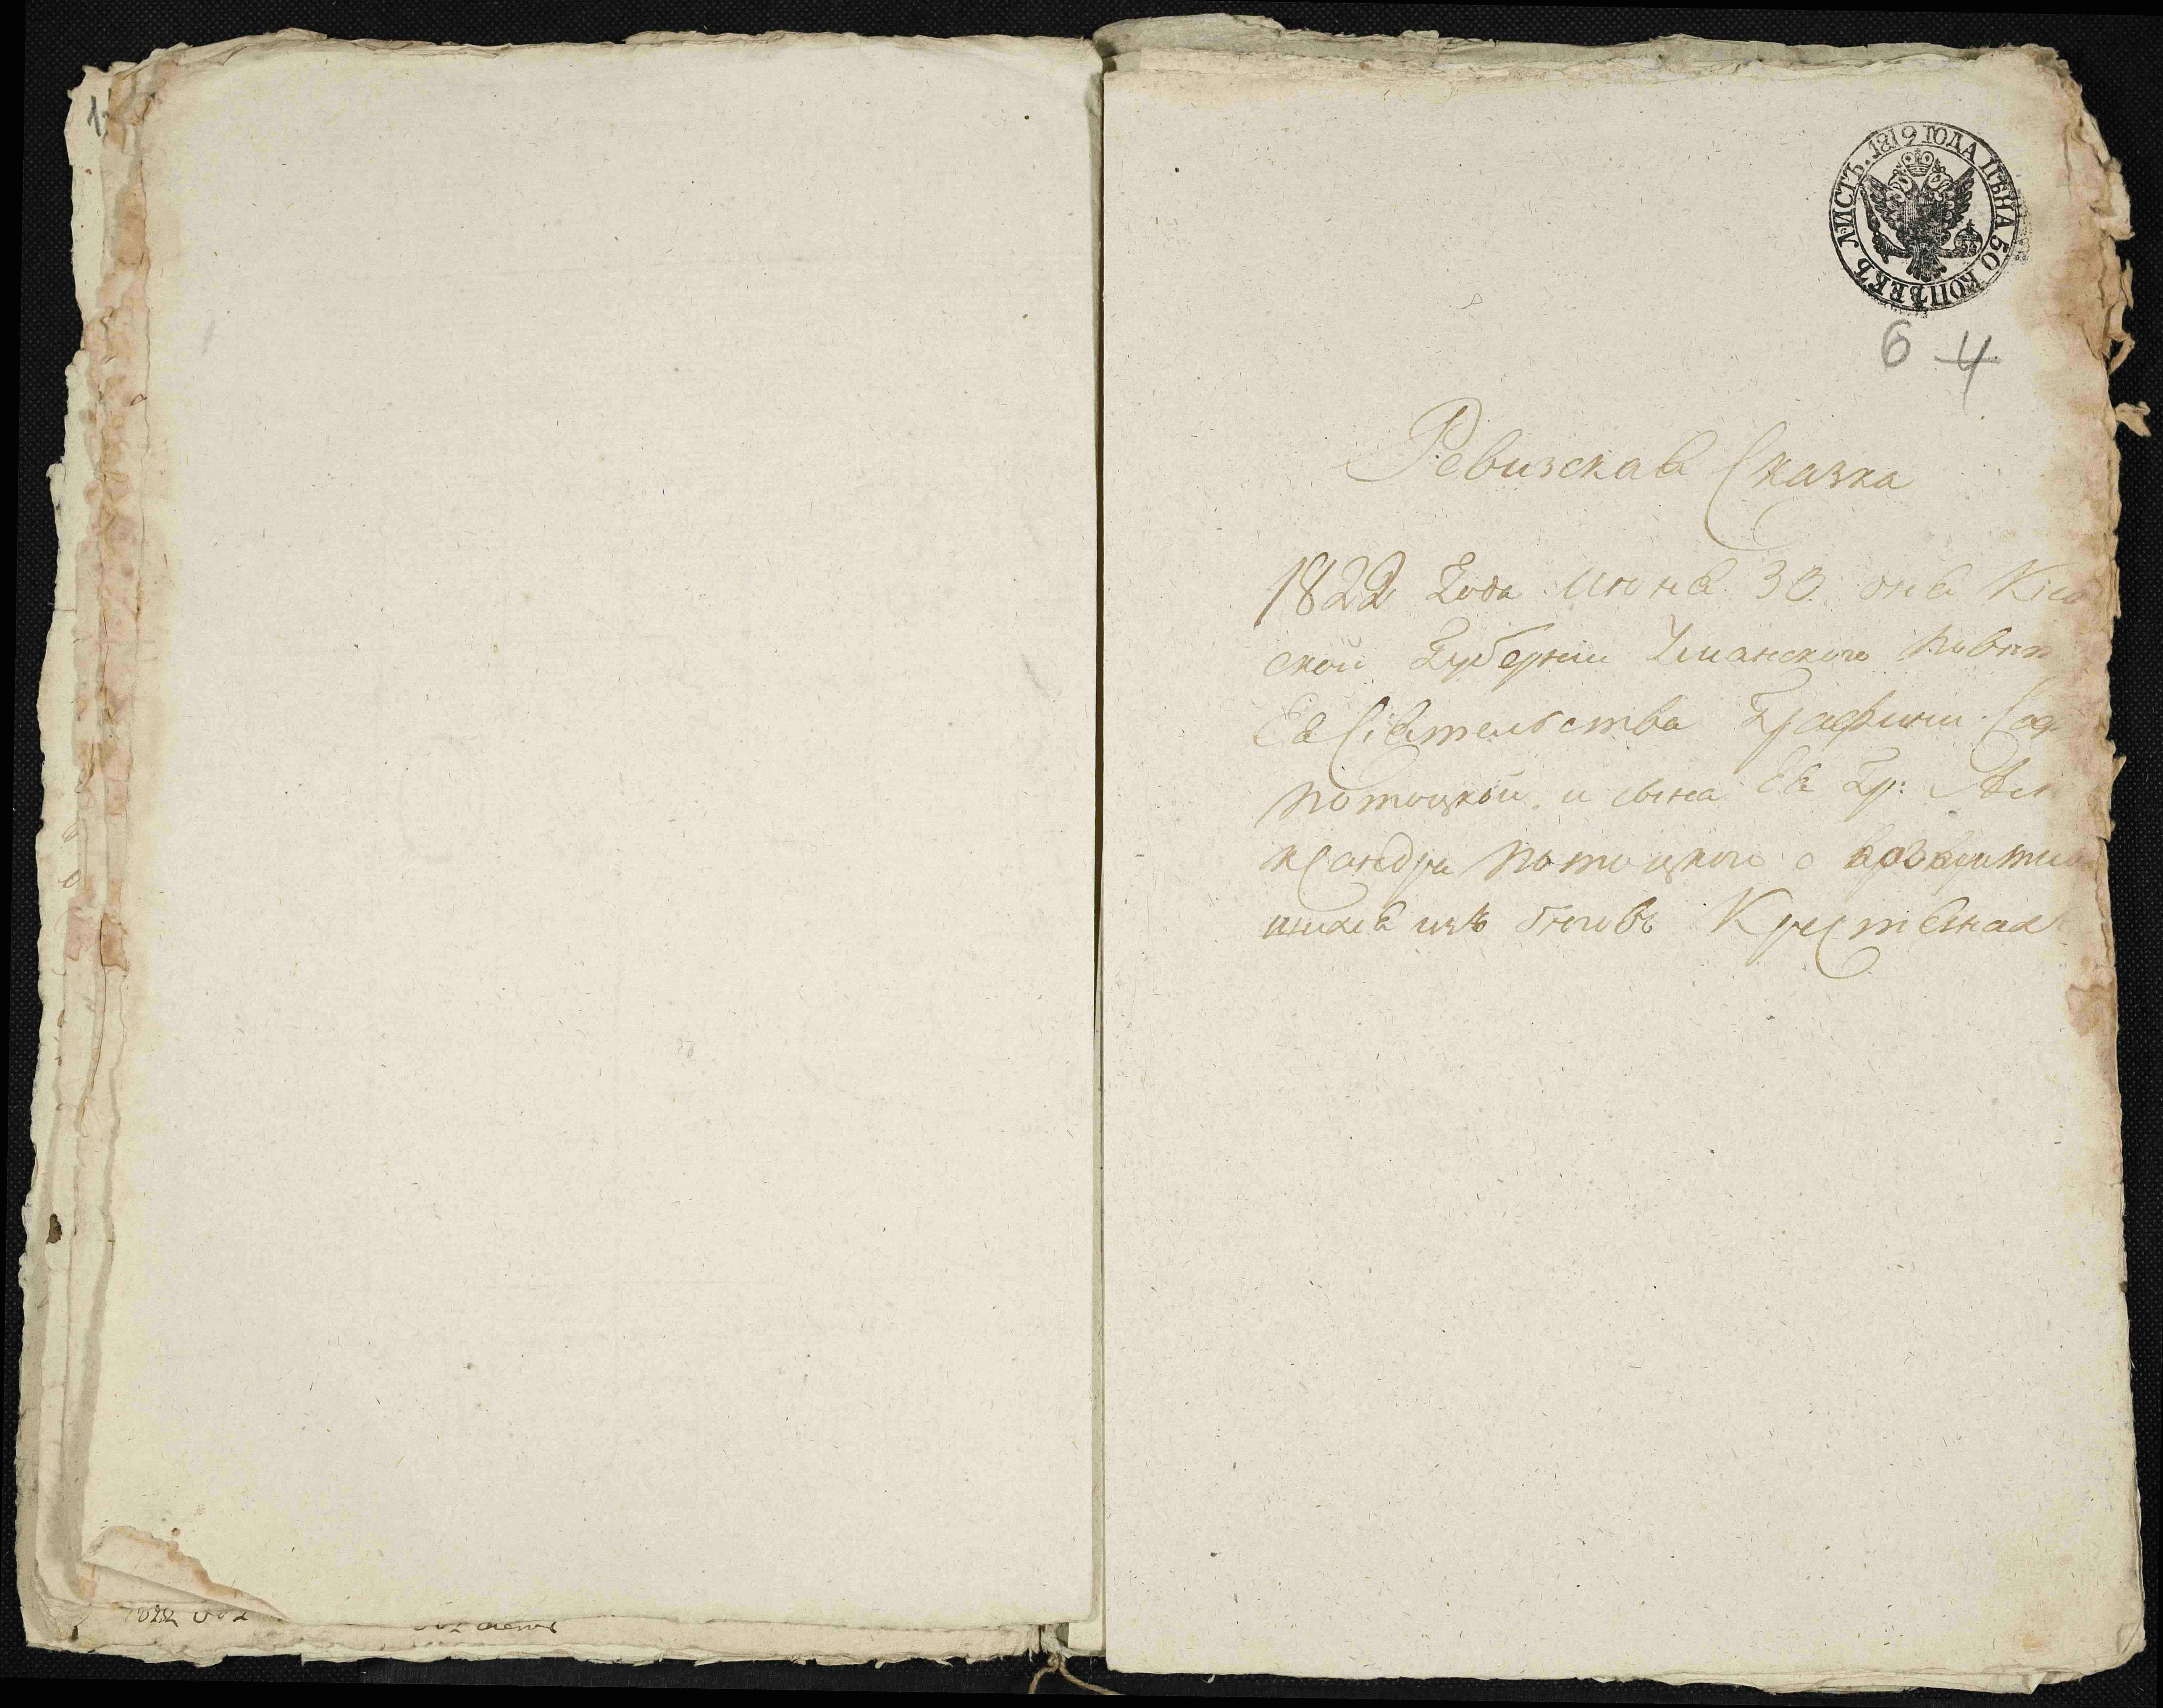 1
ЛИСТЪ. 1819 ГОДА ЦѢНА 50 КОПѢЕКЪ
6 4
Ревизская Сказка
1822 Года июня 30 дня Кіев
ской Губерніи Уманского Повѣт
Ея Сіятельства Графини Соф
Потоцкой и сына Ея Гр: Але
ксандра Потоцкого о возврати
шихся изъ бѣговъ Крестьянахъ
1822